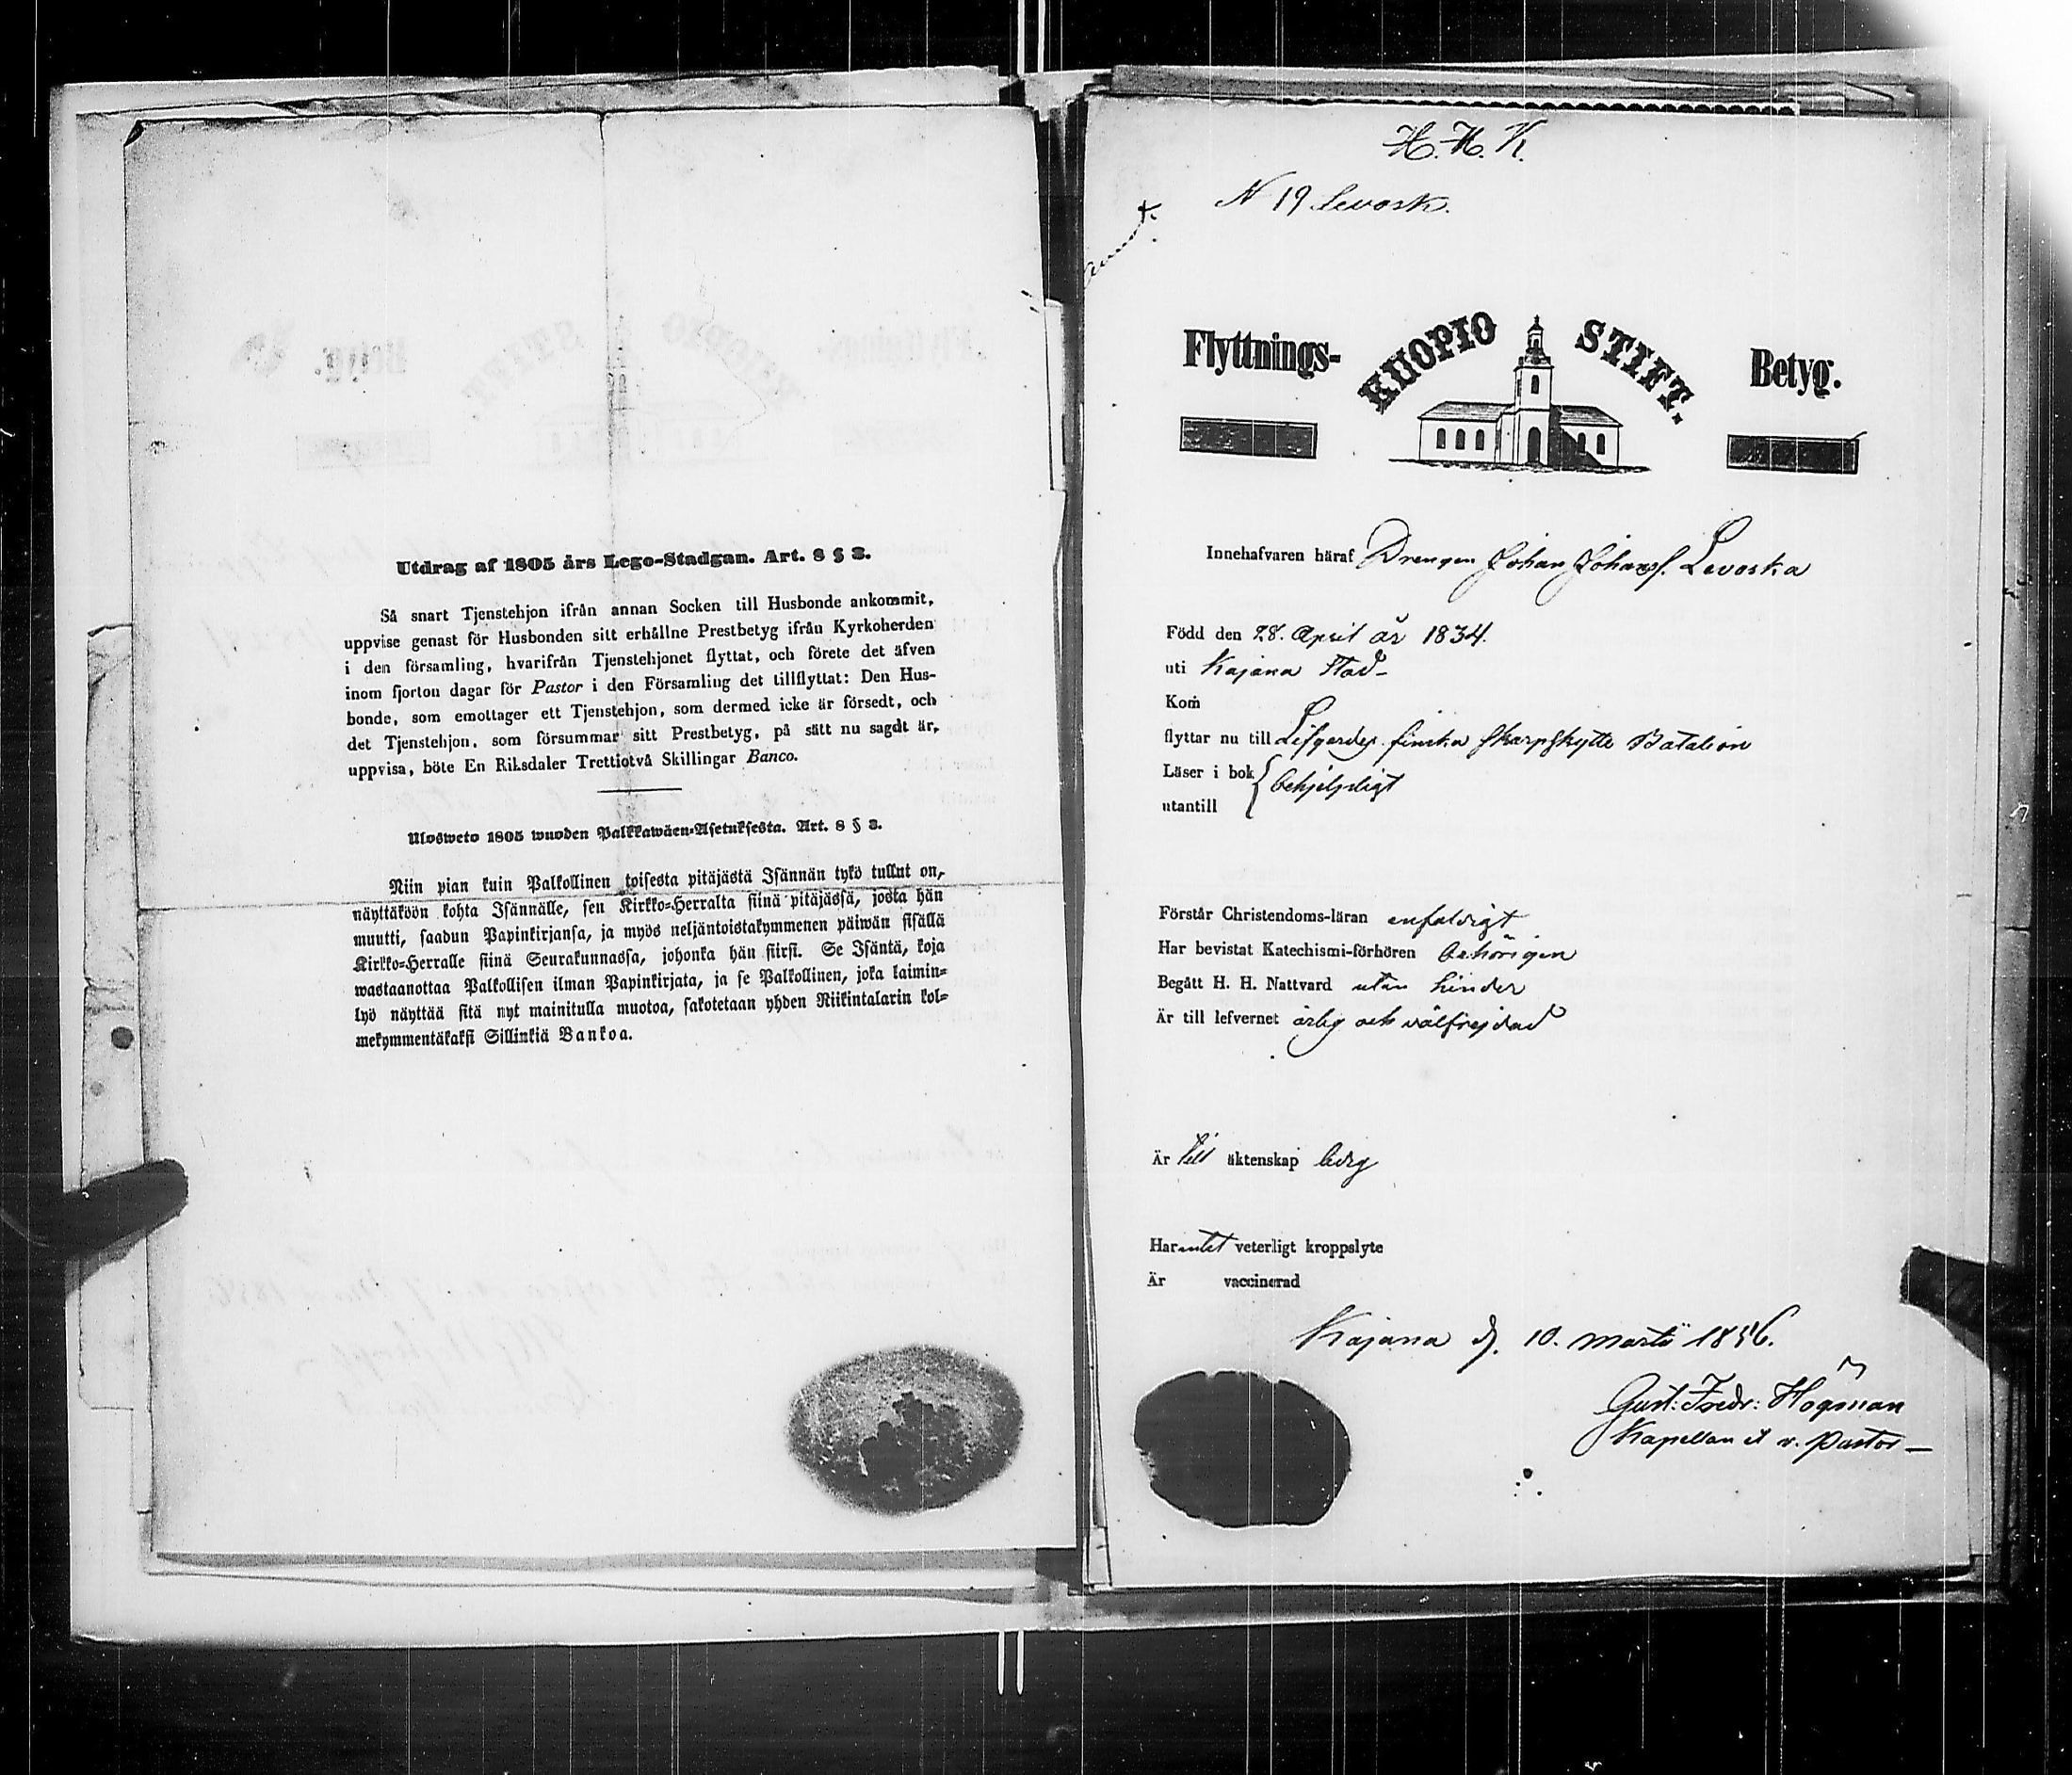 Utdrag af 1805 års Lego-Stadgan. Art. 8 § 3.
Så snart Tjenstehjon ifrån annan Socken till Husbonde ankommit,
uppvise genast för Husbonden sitt erhållne Prestbetyg ifrån Kyrkoherden
i den församling, hvarifrån Tjenstehjonet flyttat, och förete det äfven
inom fjorton dagar för Pastor i den Församling det tillflyttat: Den Hus-
bonde, som emottager ett Tjenstehjon, som dermed icke är försedt, och
det Tjenstehjon, som försummar sitt Prestbetyg, på sätt nu sagdt är,
uppvisa, böte En Riksdaler Trettiotvå Skillingar Banco.
Ulosweto 1805 wuoden Palkkawäen-Asetuksesta. Art. 8 § 3.
Niin pian kuin Palkollinen toisesta pitäjästä Isännän tykö tullut on,
näyttäköön kohta Isännälle, sen Kirkko-Herralta siinä pitäjässä, josta hän
muutti, saadun Papinkirjansa, ja myös neljäntoistakymmenen päiwän sisällä
Kirkko-Herralle siinä Seurakunnassa, johonka hän siirsi. Se Isäntä, koja
wastaanottaa Palkollisen ilman Papinkirjata, ja se Palkollinen, joka laimin-
lyö näyttää sitä nyt mainitulla muotoa, sakotetaan yhden Riikintalarin kol-
mekymmentäkaksi Sillinkiä Bankoa.
H. H. K.
N 19 Levosk.
Flyttnings- KUOPIO STIFT. Betyg.
Innehafvaren häraf Drengen Johan Johansf. Levoska
Född den 28. April år 1834.
uti Kajana Stad-
Kom̄
flyttar nu till Lifgardes finska Skarpskytte Batalion
Läser i bok { behjelpligt
utantill
Förstår Christendoms-läran enfaldigt
Har bevistat Katechismi-förhören behörigen
Begått H. H. Nattvard utan hinder
Är till lefvernet ärlig och välfrejdad
Är till äktenskap ledig
Har intet veterligt kroppslyte
Är vaccinerad
Kajana d. 10. Martii 1856.
Gust: Fredr: Högman
Kapellan et v. Pastor-